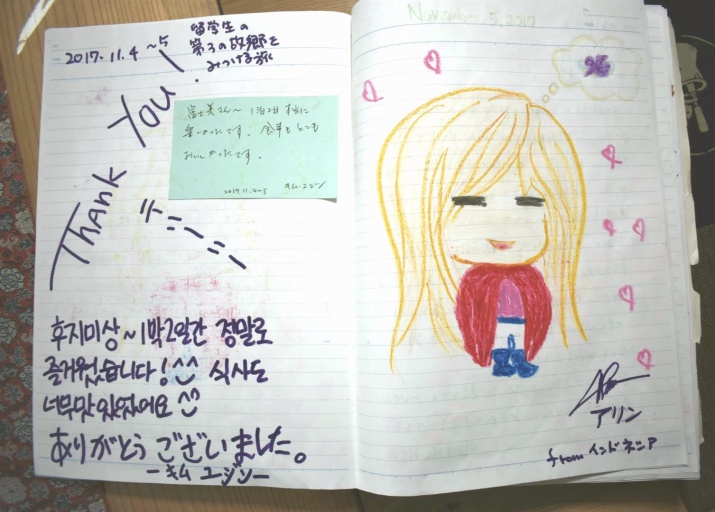 2017. 11. 4 ~ 5
留学生の
第3の故郷を
みつける旅
Thank You!
富士美さん~ 1泊2日 本当に
楽しかったです。 食事もとても
おいしかったです。
2017.11.4~5 キム・ユジン
후지미상 ~ 1박2일간 정말로
즐거웠습니다! ^^ 식사도
너무맛있었어요 ^^
ありがとう ございました。
ーキム ユジンー
November 5, 2017
アリン
from インドネシア